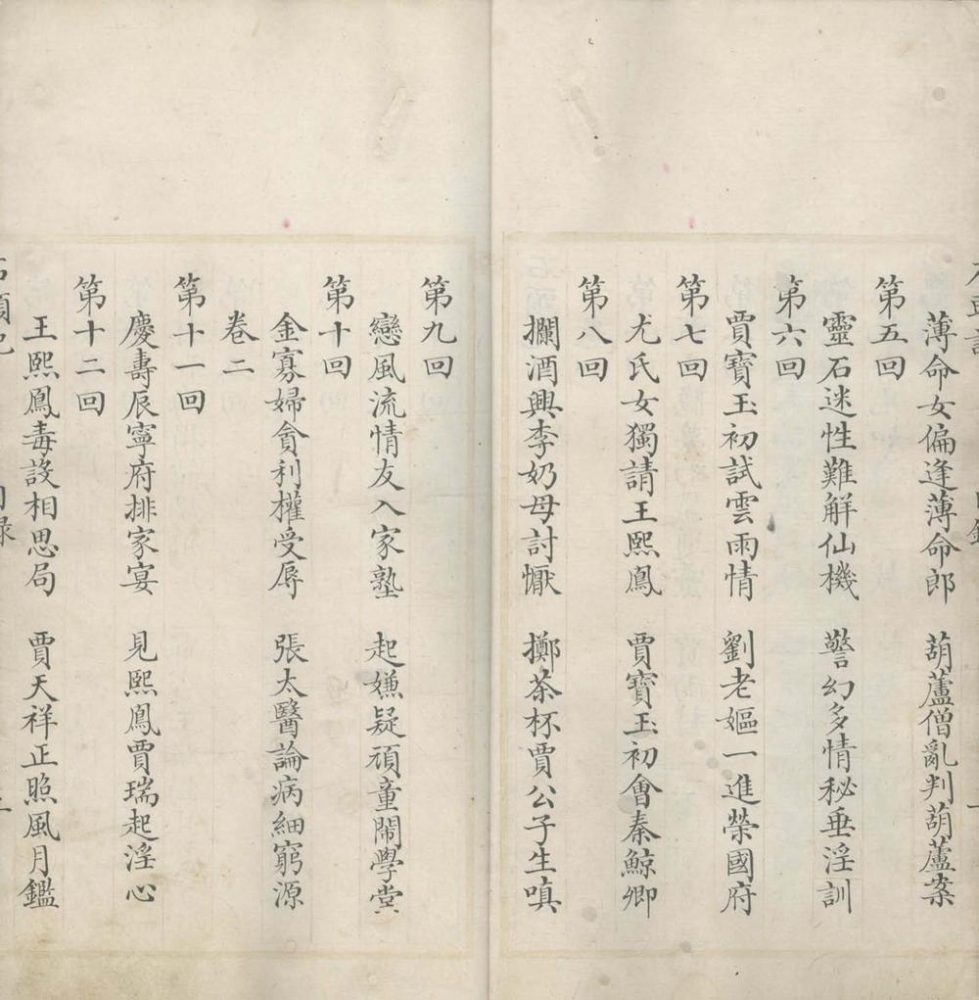 薄命女偏逢薄命郎 葫蘆僧亂判葫蘆案
第五回
靈石迷性難解仙機 警幻多情秘垂淫訓
第六回
賈寶玉初試雲雨情 劉老嫗一進榮國府
第七回
尤氏女獨請王熙鳳 賈寶玉初會秦鯨卿
第八回
攔酒興李奶母討懨 擲茶杯賈公子生嗔
第九回
戀風流情友入家塾 起嫌疑頑童鬧學堂
第十回
金寡婦貪利權受辱 張太醫論病細窮源
卷二
第十一回
慶壽辰寧府排家宴 見熙鳳賈瑞起淫心
第十二回
王熙鳳毒設相思局 賈天祥正照風月鑑